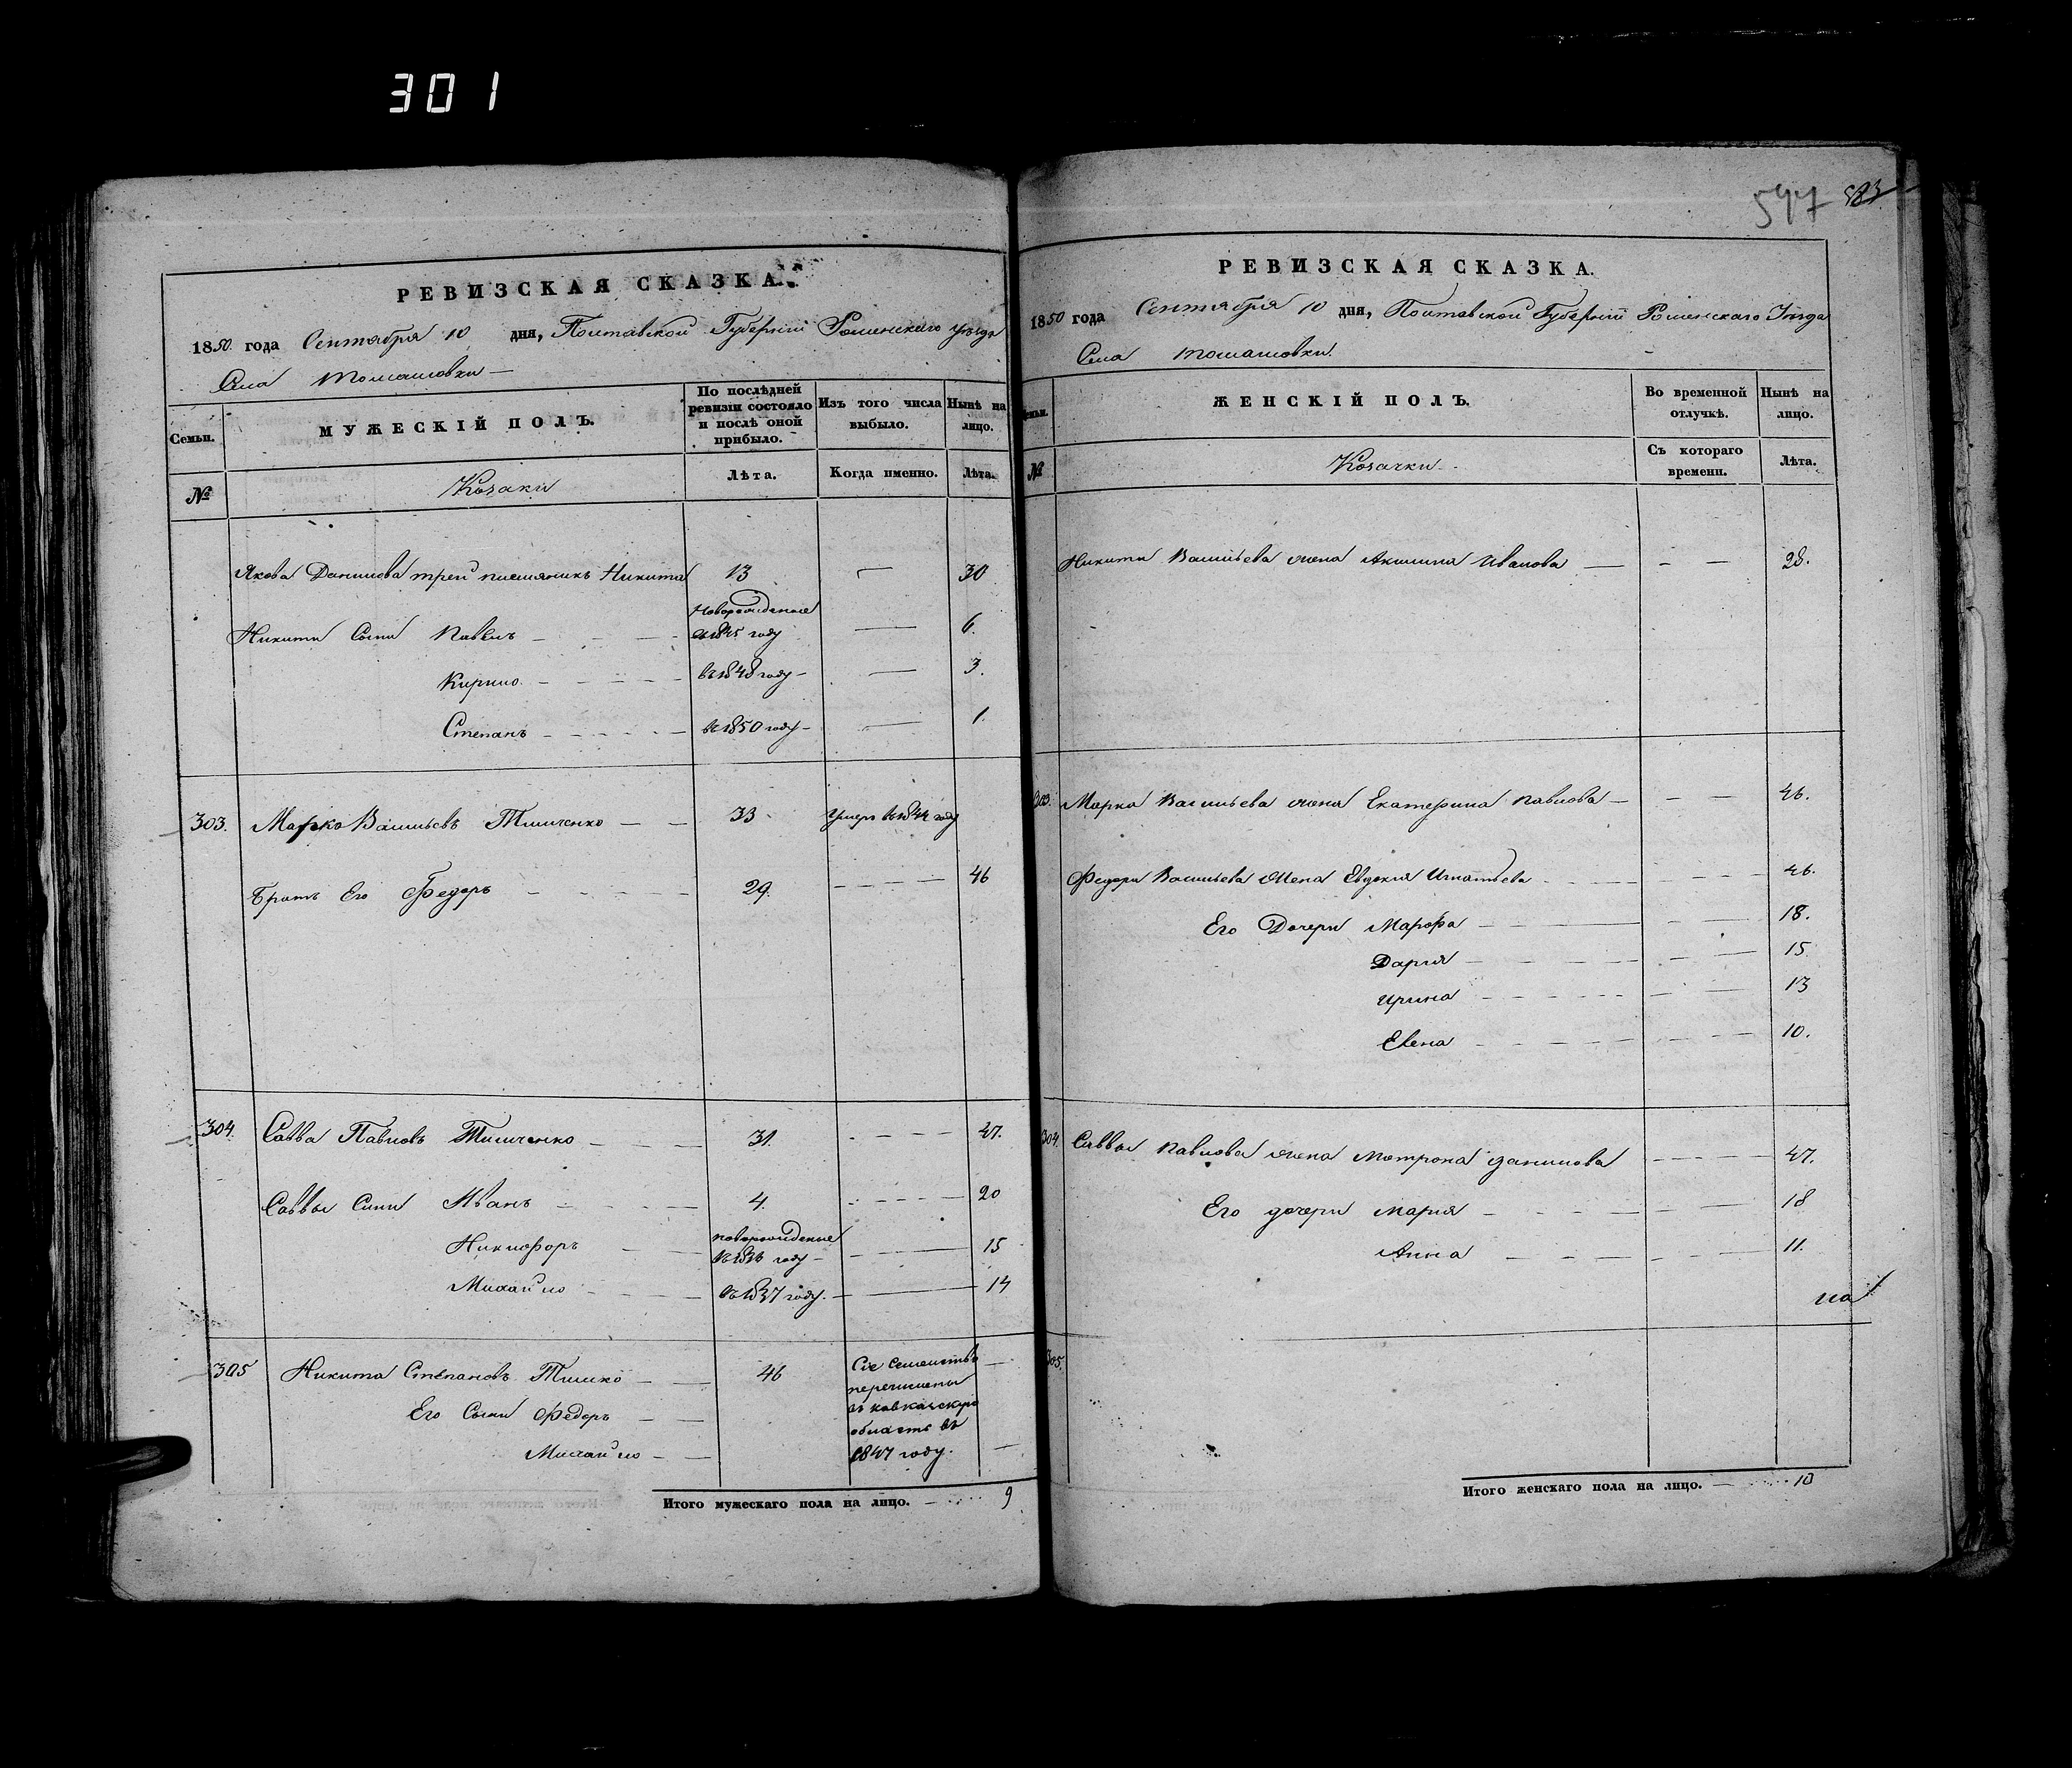 301
597 583
РЕВИЗСКАЯ СКАЗКА.
1850 года Сентября 10 дня, Полтавской Губерніи Роменскаго уѣзда
Села Томашовки
Семьи.
МУЖЕСКІЙ ПОЛЪ.
По послѣдней ревизіи состояло и послѣ оной прибыло.
Изъ того числа выбыло.
Нынѣ на лицо.
№
Козаки
Лѣта.
Когда именно.
Лѣта.
Якова Данилова трей племяникъ Никита 13 — 30
Никити Сыни Павелъ новорожденые въ 1845 году — 6.
Кирило въ 1848 году — 3.
Степанъ въ 1850 году — 1.
303. Марко Васильевъ Тимченко — 33 Умеръ въ 1844 году
Братъ Его Федоръ 29. 46
304. Савва Павловъ Тимченко 31. 47.
Саввы Сыни Иванъ 4. 20
Никифоръ новорожденые въ 1836 году 15
Михайло въ 1837 году. 14
305 Никита Степановъ Тимко 46 Сіе Семейство —
перечислены
Его Сыни Федоръ въ кавказскую
область въ
Михайло 1847 году. —
Итого мужескаго пола на лицо. — 9
РЕВИЗСКАЯ СКАЗКА.
1850 года Сентября 10 дня, Полтавской Губерніи Роменскаго Уѣзда
Села Томашовки.
Семьи.
ЖЕНСКІЙ ПОЛЪ.
Во временной отлучкѣ.
Нынѣ на лицо.
№
Козачки
Съ котораго времени.
Лѣта.
Никити Васильева жена Акилина Иванова — 28.
303. Марка Васильева жена Екатерина Павлова — 46.
Федора Васильева Жена Евдокия Игнатьева 46.
Его Дочери Марфа 18.
Дария 15.
Ирина 13
Елена 10.
304. Саввы Павлова жена Мотрона Данилова 47.
Его дочери Мария 18
Анна 11.
305.
Итого женскаго пола на лицо. — 10